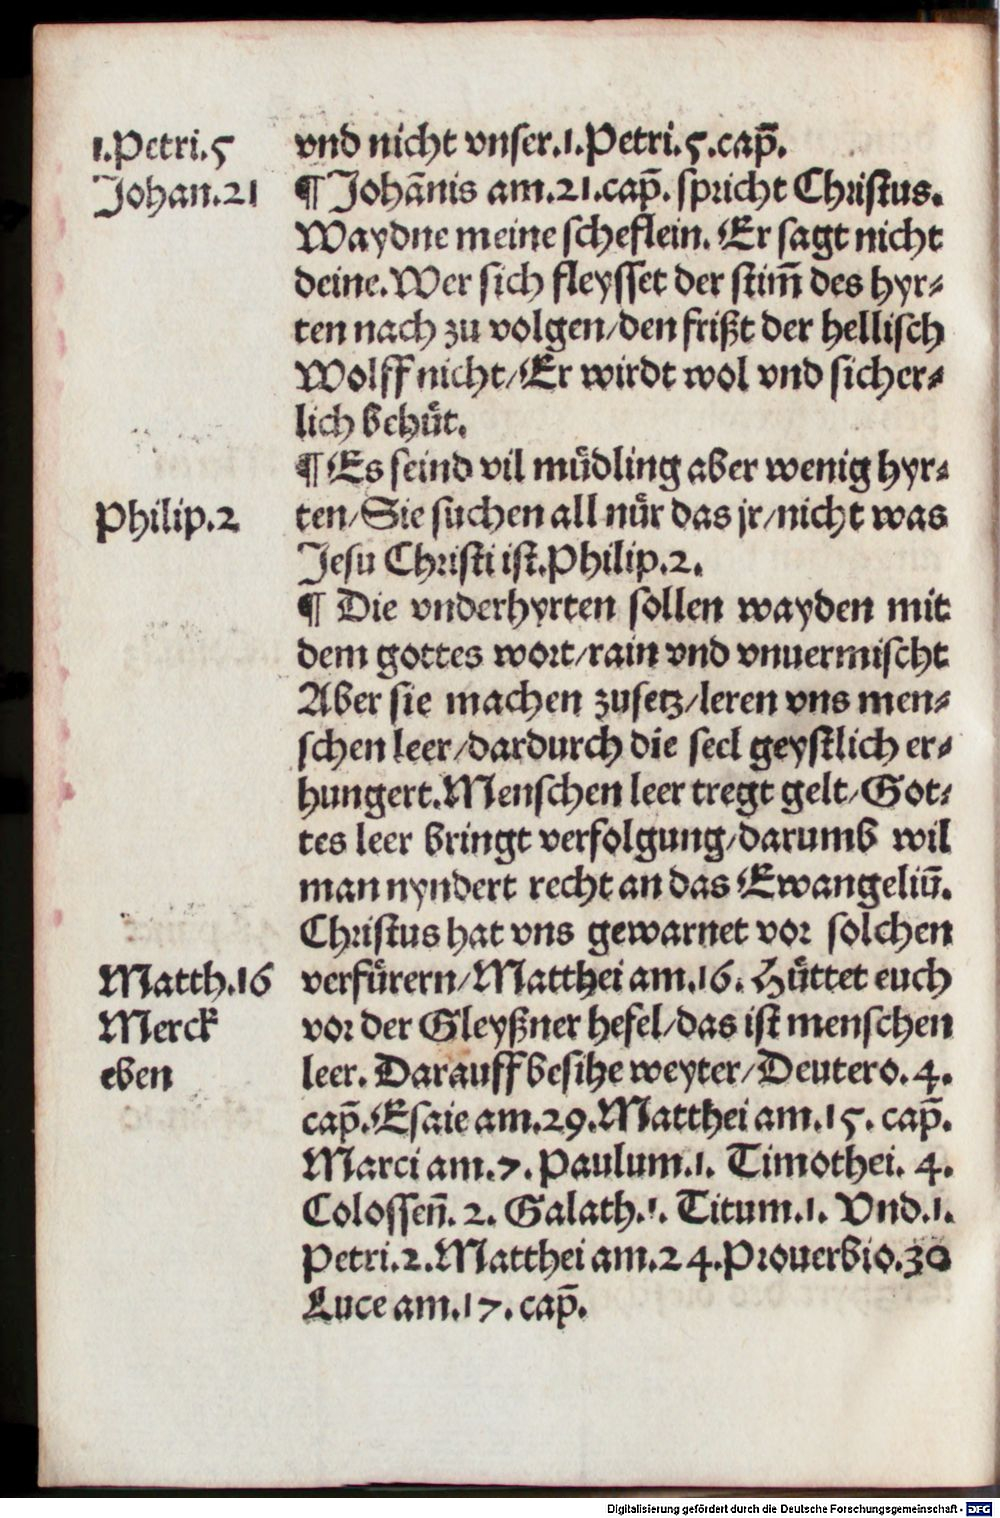 1.Petri.5
vnd nicht vnser.1.Petri.5.cap̃.
Johan.21
¶ Johãnis am.21.cap̃. spricht Christus.
Waydne meine scheflein. Er sagt nicht
deine. Wer sich fleysset der stim̃ des hyr⸗
ten nach zu volgen/den frißt der hellisch
Wolff nicht/Er wirdt wol vnd sicher⸗
lich behuͤt.
¶ Es seind vil muͤdling aber wenig hyr⸗
Philip.2
ten/Sie suchen all nuͤr das jr/nicht was
Jesu Christi ist.Philip.2.
¶ Die vnderhyrten sollen wayden mit
dem gottes wort/rain vnd vnuermischt
Aber sie machen zusetz/leren vns men⸗
schen leer/dardurch die seel geystlich er⸗
hungert.Menschen leer tregt gelt/Got⸗
tes leer bringt verfolgung/darumb wil
man nyndert recht an das Ewangeliũ.
Christus hat vns gewarnet vor solchen
Matth.16
verfuͤrern/Matthei am.16. Huͤttet euch
Merck
vor der Gleyßner hefel/das ist menschen
eben
leer. Darauff besihe weyter/Deutero.4.
cap̃.Esaie am.29.Matthei am.15. cap̃.
Marci am.7. Paulum.1. Timothei. 4.
Colosseñ. 2. Galath.1. Titum.1. Vnd.1.
Petri.2.Matthei am.24.Prouerbio.30
Luce am.17. cap̃.
Digitalisierung gefördert durch die Deutsche Forschungsgemeinschaft - DFG